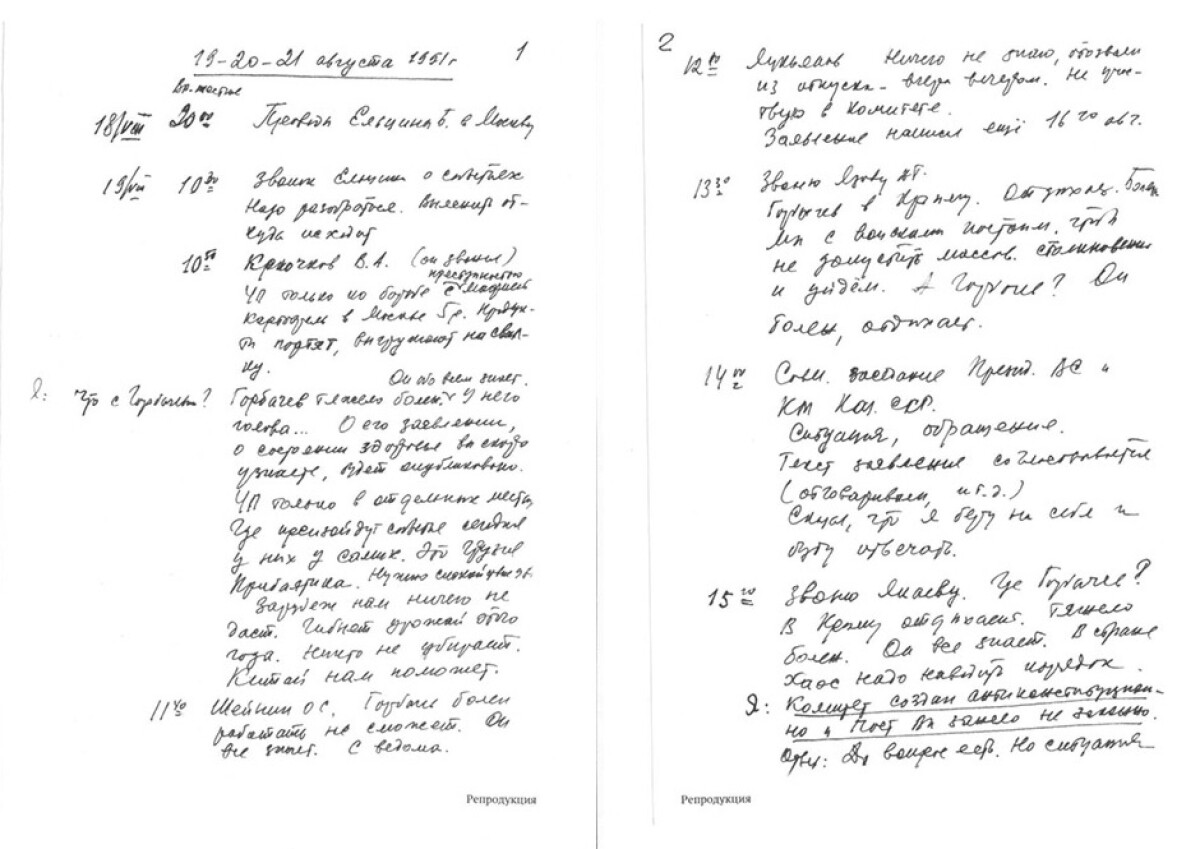 1
19-20-21 августа 1991г
18/VIII 20 00 Проводы Ельцина Б. в Москву
19/VIII 10 30 Звонок Ельцина о событиях
Надо разобраться. Выяснить от-
куда исходит
10 50 Крючков В.А. (он звонил)
преступностью
ЧП только по борьбе с мафией
Картофель в Москве 5 р. Продук-
ты портят, выгружают на свал-
ку.
Он обо всем знает.
Я: Что с Горбачевым? Горбачев тяжело болен. У него
голова... О его заявлении,
о состоянии здоровья вы скоро
узнаете, будет опубликовано.
ЧП только в отдельных местах
Где произойдут события сегодня
у них у самих. Это Грузия
Прибалтика. Нужно спокойствие
Зарубеж нам ничего не
даст. Гибнет урожай этого
года. Никто не убирает.
Китай нам поможет.
11 40 Шейнин О С. Горбачев болен
работать не сможет. Он
все знает. С ведома.
Репродукция
2
12 00 Лукьянов Ничего не знаю, отозвали
из отпуска - вчера вечером. Не учас-
твую в Комитете.
Заявление написал ещё 16 го авг.
13 30 Звоню Язову Д.Т.
Горбачев в Крыму. Отдыхает.
мы с войсками постоим, чтоб
не допустить массов. столкновения
и уйдём. А Горбачев? Он
болен, отдыхает.
14 00 Совм. заседание Презид. ВС и
Каб. Каз. ССР.
Ситуация, обращение.
Текст заявления согласовывается
(отговаривали, и т.д.)
Сказал, что я беру на себя и
буду отвечать.
15 00 Звоню Янаеву. Где Горбачев?
В Крыму отдыхает. Тяжело
болен. Он все знает. В стране
Хаос надо наводить порядок.
Я: Комитет создан антиконституцион-
но и Пост Вы заняли не законно.
Ответ: Да вопрос есть. Но ситуация
Репродукция